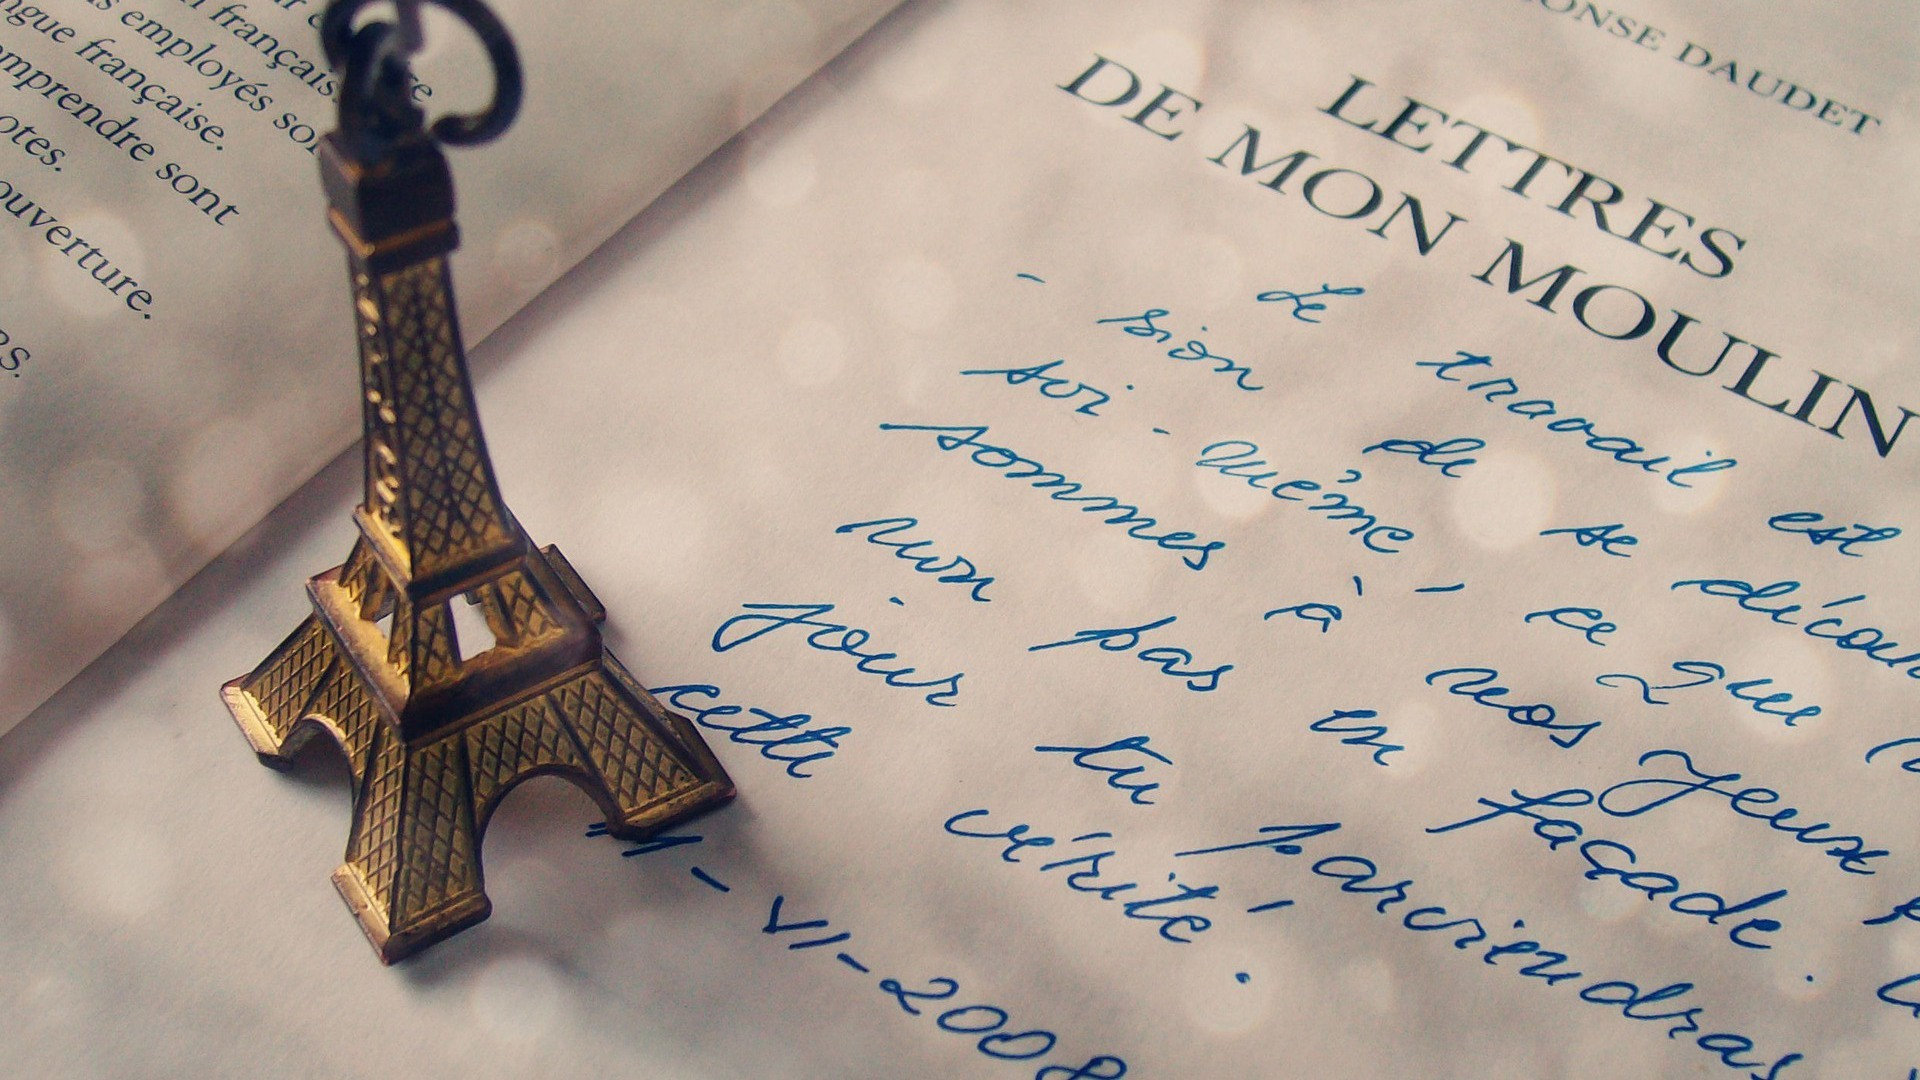 n français
employés
ngue française.
mprendre sont
otes.
ouverture.
RS.
ONSE DAUDET
LETTRES
DE MON MOULIN
Le travail est
- sion de se décou
soi-même, ce que
sommes à nos yeux
non pas en façade.
jour tu parviendras
cette vérité.
VI-2008